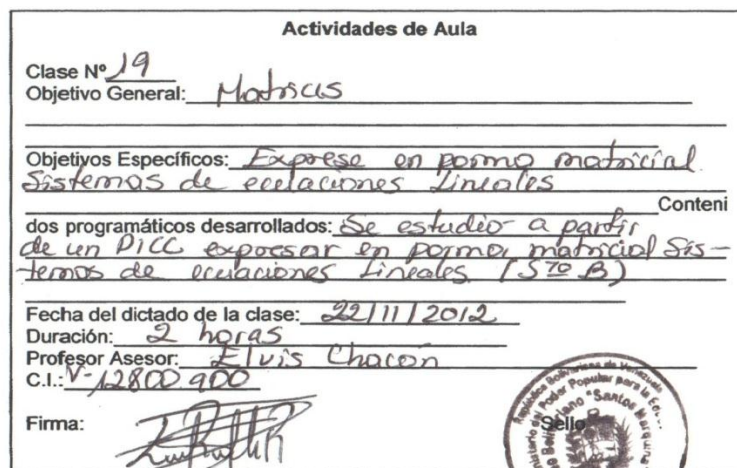 Actividades de Aula
Clase Nº 19
Objetivo General: Matrices
Objetivos Específicos: Exprese en forma matricial
Sistemas de ecuaciones Lineales
Conteni
dos programáticos desarrollados: Se estudio a partir
de un expresar en forma matricial Sis-
temas de ecuaciones Lineales (5to B)
Fecha del dictado de la clase: 22/11/2012
Duración: 2 horas
Profesor Asesor: Elvis Chacón
C.I.: V-12800900
Firma:
Sello
República Bolivariana de Venezuela
Poder Popular para la
"Santos Marquina